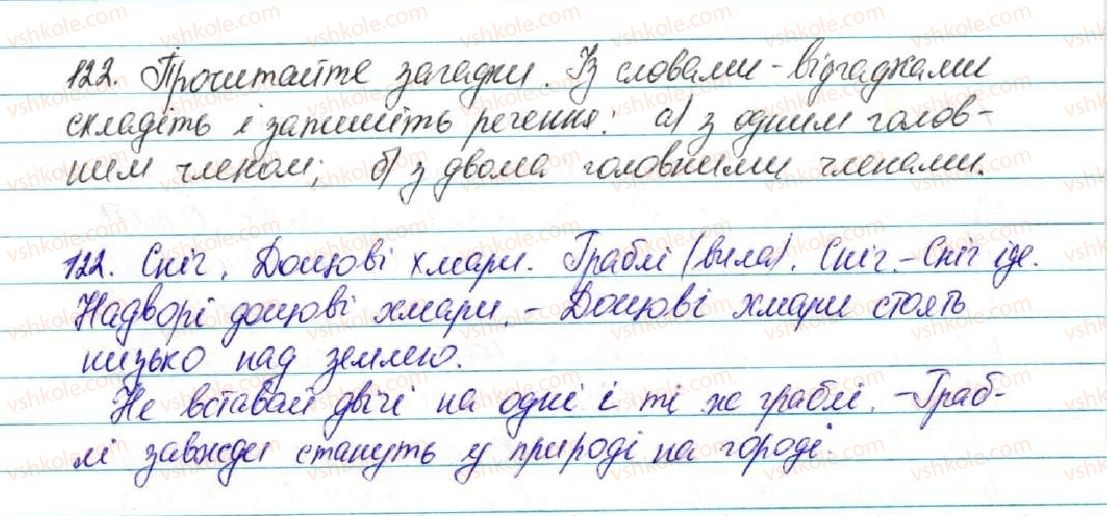 122. Прочитайте загадки. Із словами-відгадками
складіть і запишіть речення: а) з одним голов-
ним членом; б) з двома головними членами.
122. Сніг, Дощові хмари. Граблі (вила). Сніг. - Сніг іде.
Надворі дощові хмари. - Дощові хмари стоять
низько над землею.
Не вставай двічі на одні і ті ж граблі. - Граб-
лі завжди стануть у природі на городі.